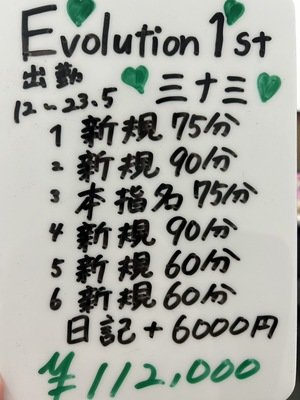 Evolution 1st
出勤
12〜23.5
三十三
1 新規 75分
2 新規 90分
3 本指名 75分
4 新規 90分
5 新規 60分
6 新規 60分
日記+6000円
¥112,000